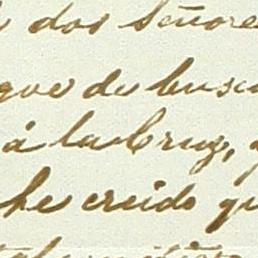 dos Señore
que de busca
á la Cruz,
he creido qu